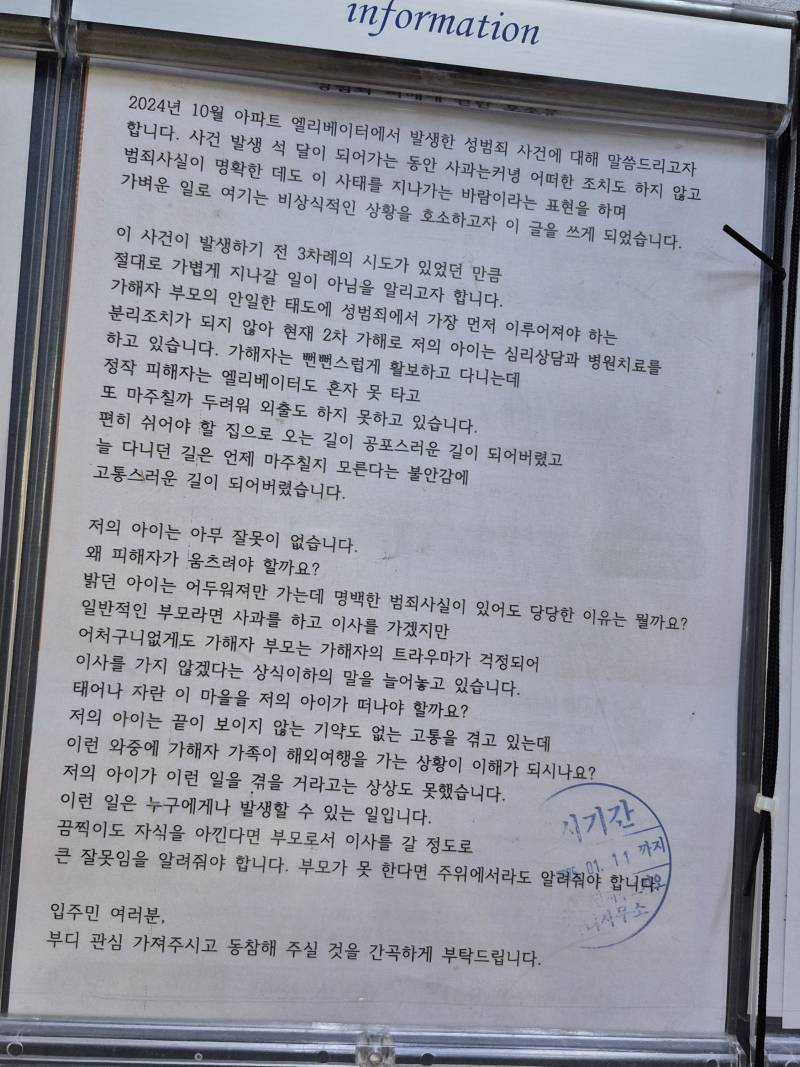 information
2024년 10월 아파트 엘리베이터에서 발생한 성범죄 사건에 대해 말씀드리고자
합니다. 사건 발생 석 달이 되어가는 동안 사과는커녕 어떠한 조치도 하지 않고
범죄사실이 명확한 데도 이 사태를 지나가는 바람이라는 표현을 하며
가벼운 일로 여기는 비상식적인 상황을 호소하고자 이 글을 쓰게 되었습니다.
이 사건이 발생하기 전 3차례의 시도가 있었던 만큼
절대로 가볍게 지나갈 일이 아님을 알리고자 합니다.
가해자 부모의 안일한 태도에 성범죄에서 가장 먼저 이루어져야 하는
분리조치가 되지 않아 현재 2차 가해로 저의 아이는 심리상담과 병원치료를
하고 있습니다. 가해자는 뻔뻔스럽게 활보하고 다니는데
정작 피해자는 엘리베이터도 혼자 못 타고
또 마주칠까 두려워 외출도 하지 못하고 있습니다.
편히 쉬어야 할 집으로 오는 길이 공포스러운 길이 되어버렸고
늘 다니던 길은 언제 마주칠지 모른다는 불안감에
고통스러운 길이 되어버렸습니다.
저의 아이는 아무 잘못이 없습니다.
왜 피해자가 움츠려야 할까요?
밝던 아이는 어두워져만 가는데 명백한 범죄사실이 있어도 당당한 이유는 뭘까요?
일반적인 부모라면 사과를 하고 이사를 가겠지만
어처구니없게도 가해자 부모는 가해자의 트라우마가 걱정되어
이사를 가지 않겠다는 상식이하의 말을 늘어놓고 있습니다.
태어나 자란 이 마을을 저의 아이가 떠나야 할까요?
저의 아이는 끝이 보이지 않는 기약도 없는 고통을 겪고 있는데
이런 와중에 가해자 가족이 해외여행을 가는 상황이 이해가 되시나요?
저의 아이가 이런 일을 겪을 거라고는 상상도 못했습니다.
이런 일은 누구에게나 발생할 수 있는 일입니다.
끔찍이도 자식을 아낀다면 부모로서 이사를 갈 정도로
큰 잘못임을 알려줘야 합니다. 부모가 못 한다면 주위에서라도 알려줘야 합니다.
입주민 여러분,
부디 관심 가져주시고 동참해 주실 것을 간곡하게 부탁드립니다.
시기간
01. 11 까지
사무소